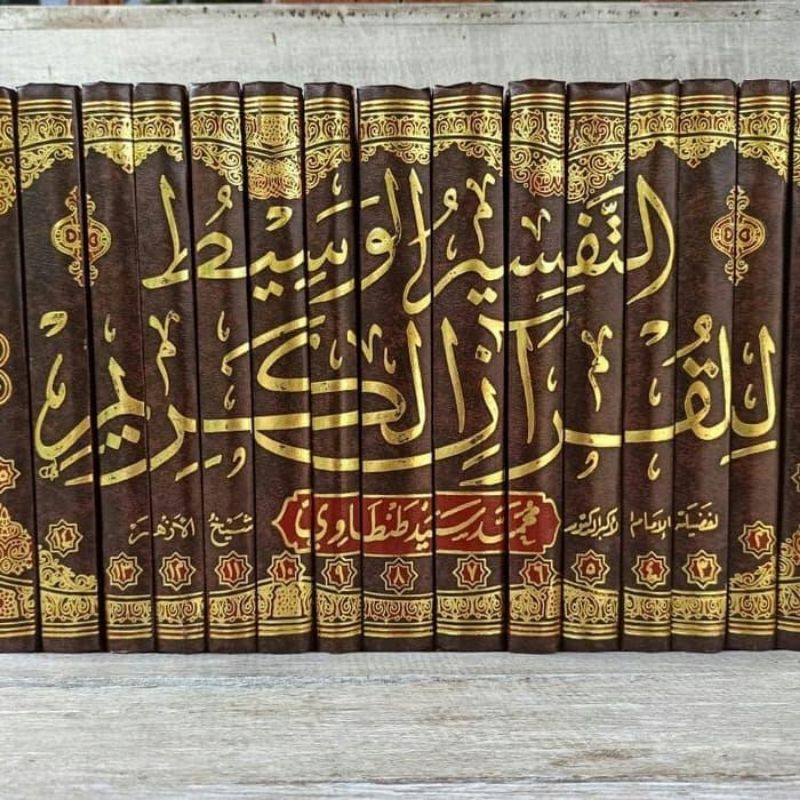 التَّفْسِيرُ الوَسِيطُ
لِلقُرْآنِ الكَرِيمِ
لفضيلة الإمام الأكبر الدكتور محمد سيد طنطاوي شيخ الأزهر
٢ ٣ ٤ ٥ ٦ ٧ ٨ ٩ ١٠ ١١ ١٢ ١٣ ١٤